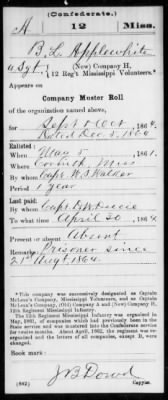 (Confederate.)
A 12 Miss.
B. L. Applewhite
Sgt., (New) Company H,
12 Reg't Mississippi Volunteers.*
Appears on
Company Muster Roll
of the organization named above,
for Sept & Oct, 1864.
Enlisted:
When May 5, 1861.
Where Corinth, Miss
By whom Capt
Period 1 year
Last paid:
By whom Capt
To what time April 30, 1864.
Present or absent Absent
Remarks: Prisoner since
21 Augt 1864.
*This company was successively designated as Captain
McLean's Company, Mississippi Volunteers, and as Captain
McLean's Company, (Old) Company A and (New) Company H,
12th Regiment Mississippi Infantry.
The 12th Regiment Mississippi Infantry was organized in
May, 1861, of companies which had previously been in the
State service and were mustered into the Confederate service
for
and the letters of all companies, except H, were
changed.
Book mark:
J B Dowd
(642) Copyist.